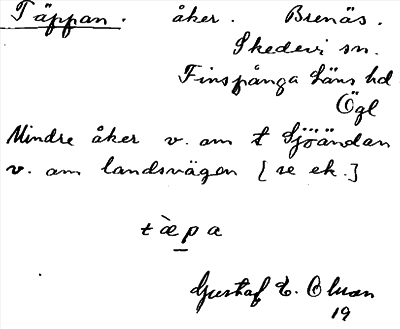 Täppan. åker. Brenäs.
Skedevi sn.
Finspånga läns hd
Ögl
Mindre åker v. om t Sjöändan
v. om landsvägen [se ek.]
tæ̀pa
Gustaf E. Olson
19